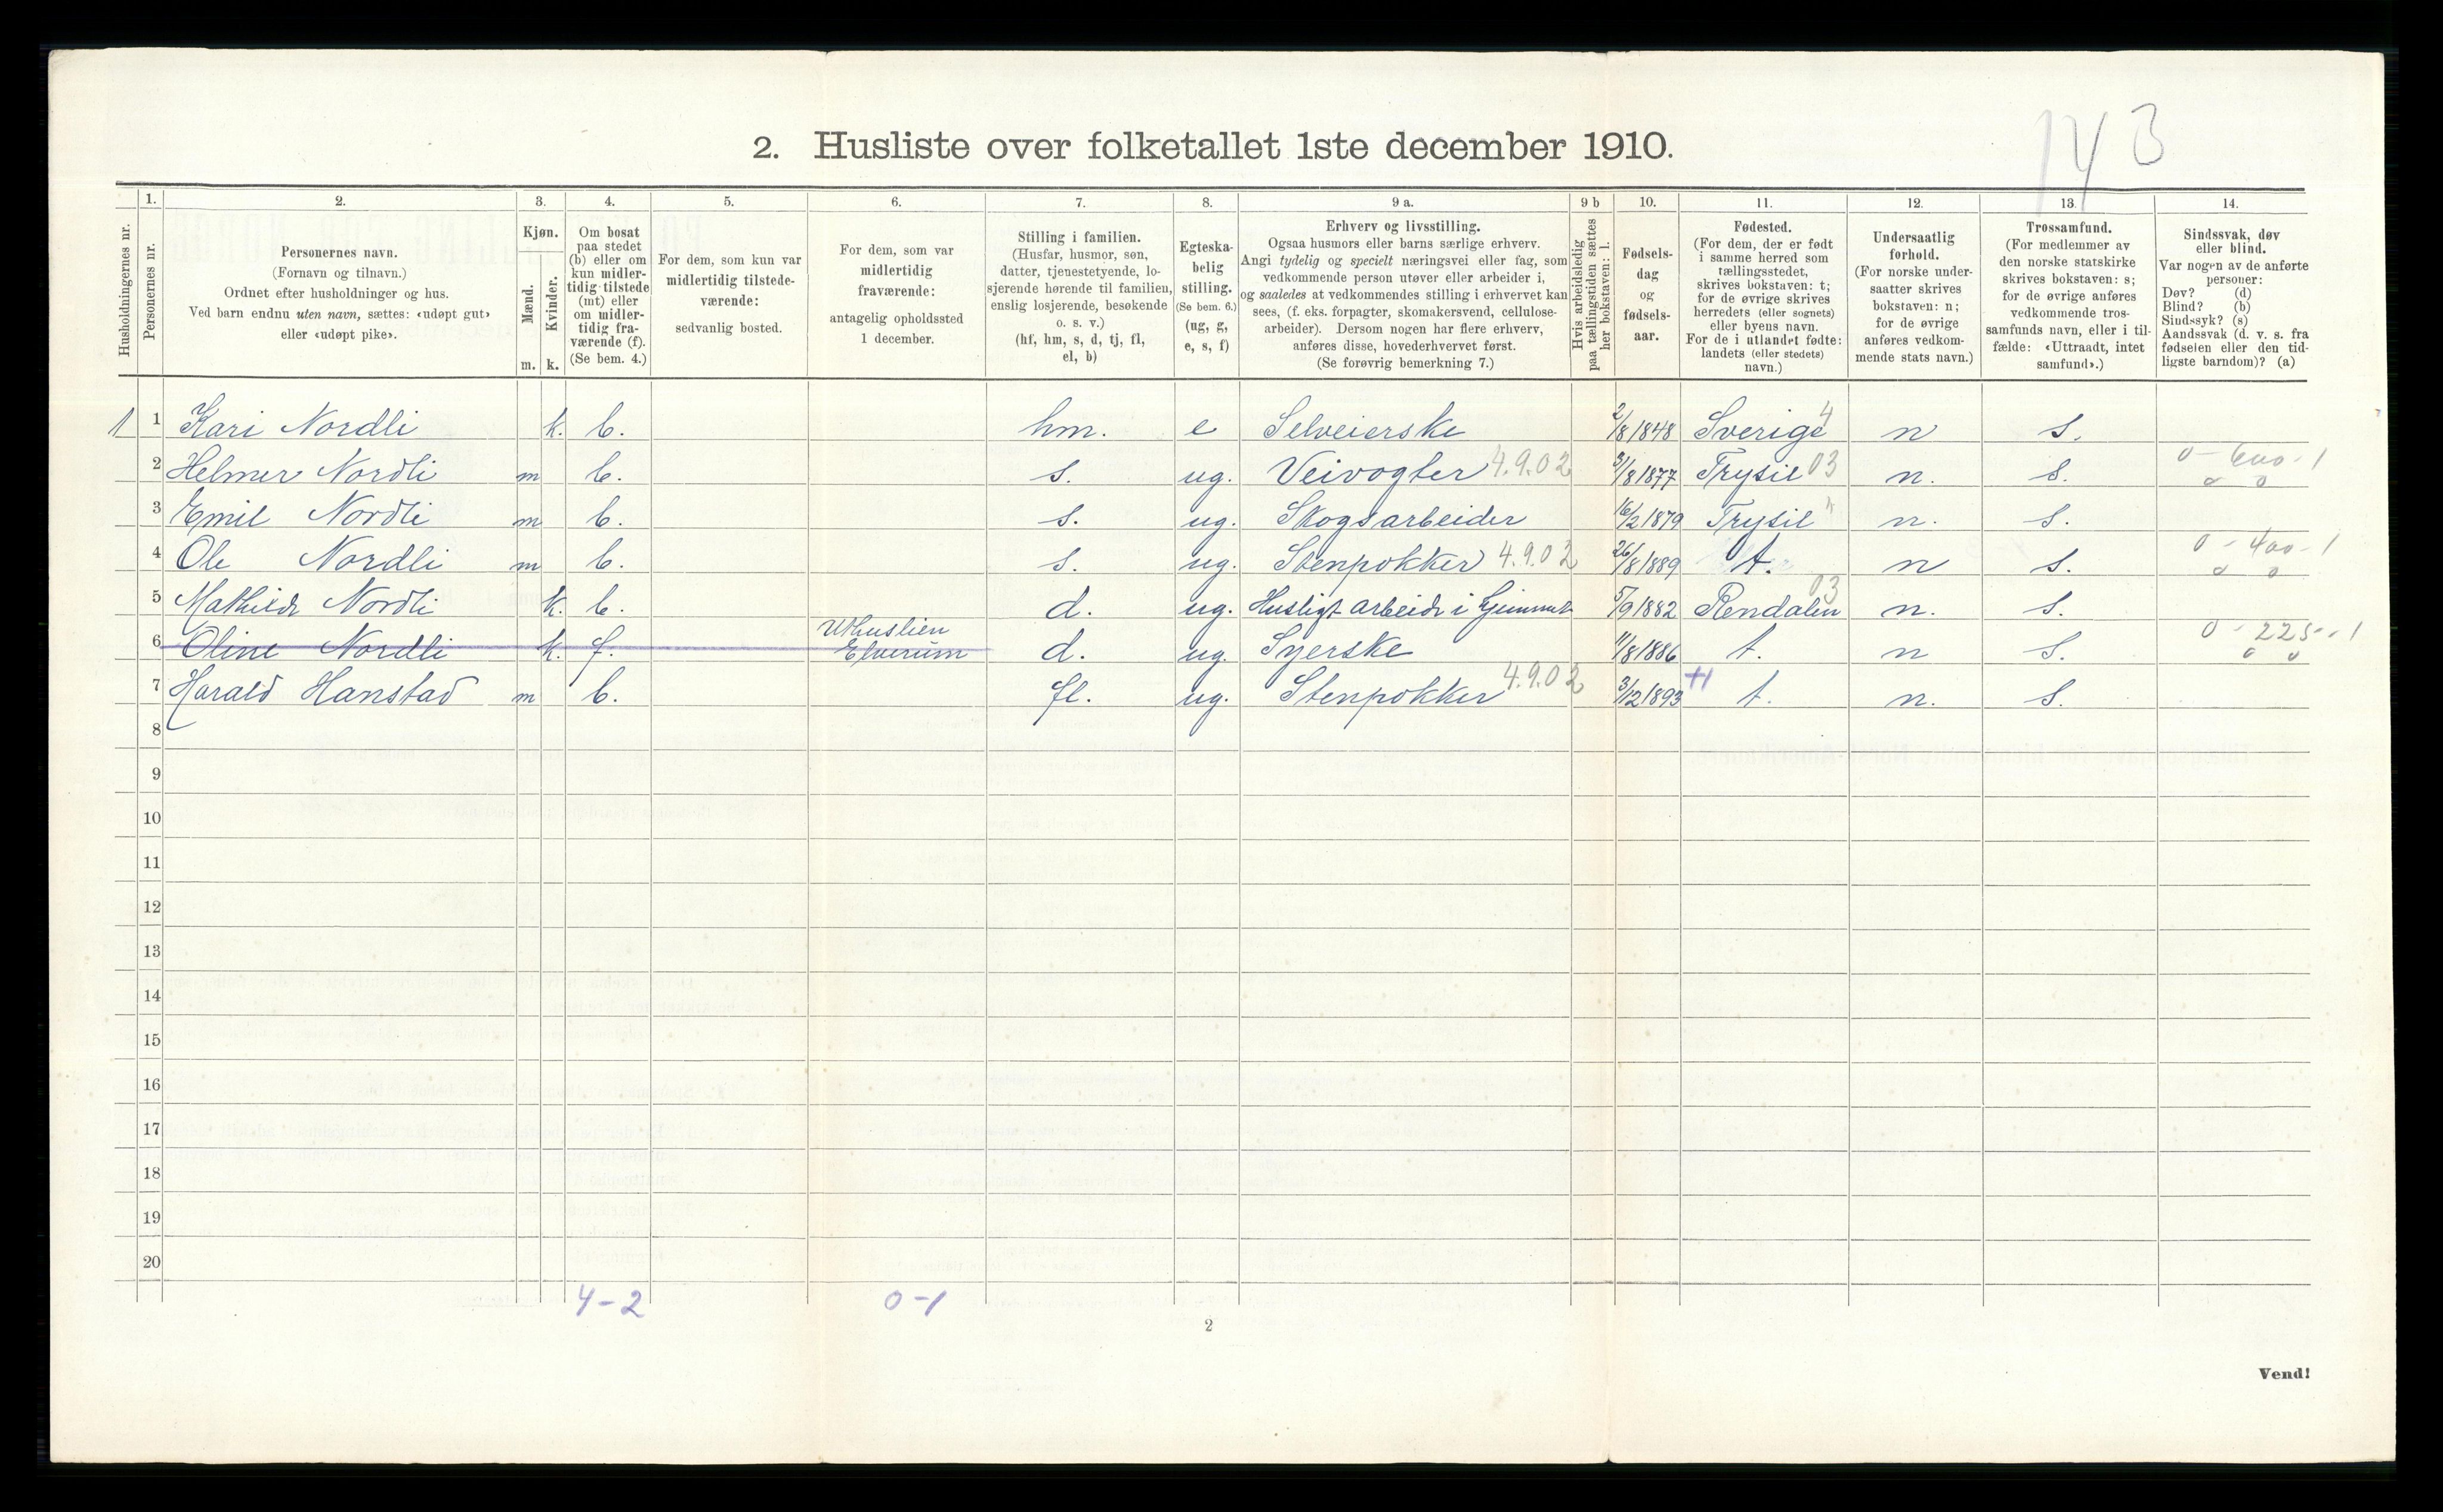 143
2. Husliste over folketallet 1ste december 1910.
1. 2. 3. 4. 5. 6. 7. 8. 9 a. 9 b 10. 11. 12. 13. 14.
Husholdningernes nr.
Personernes nr.
Personernes navn.
(Fornavn og tilnavn.)
Ordnet efter husholdninger og hus.
Ved barn endnu uten navn, sættes: «udøpt gut»
eller «udøpt pike».
Kjøn.
Mænd.
Kvinder.
m. k.
Om bosat
paa stedet
(b) eller om
kun midler-
tidig tilstede
(mt) eller
om midler-
tidig fra-
værende (f).
(Se bem. 4.)
For dem, som kun var
midlertidig tilstede-
værende:
sedvanlig bosted.
For dem, som var
midlertidig
fraværende:
antagelig opholdssted
1 december.
Stilling i familien.
(Husfar, husmor, søn,
datter, tjenestetyende, lo-
sjerende hørende til familien,
enslig losjerende, besøkende
o. s. v.)
(hf, hm, s, d, tj, fl,
el, b)
Egteska-
belig
stilling.
(Se bem. 6.)
(ug, g,
e, s, f)
Erhverv og livsstilling.
Ogsaa husmors eller barns særlige erhverv.
Angi tydelig og specielt næringsvei eller fag, som
vedkommende person utøver eller arbeider i,
og saaledes at vedkommendes stilling i erhvervet kan
sees, (f. eks. forpagter, skomakersvend, cellulose-
arbeider). Dersom nogen har flere erhverv,
anføres disse, hovederhvervet først.
(Se forøvrig bemerkning 7.)
Hvis arbeidsledig
paa tællingstiden sættes
her bokstaven: l.
Fødsels-
dag
og
fødsels-
aar.
Fødested.
(For dem, der er født
i samme herred som
tællingsstedet,
skrives bokstaven: t;
for de øvrige skrives
herredets (eller sognets)
eller byens navn.
For de i utlandet fødte:
landets (eller stedets)
navn.)
Undersaatlig
forhold.
(For norske under-
saatter skrives
bokstaven: n;
for de øvrige
anføres vedkom-
mende stats navn.)
Trossamfund.
(For medlemmer av
den norske statskirke
skrives bokstaven: s;
for de øvrige anføres
vedkommende tros-
samfunds navn, eller i til-
fælde: «Uttraadt, intet
samfund».)
Sindssvak, døv
eller blind.
Var nogen av de anførte
personer:
Døv? (d)
Blind? (b)
Sindssyk? (s)
Aandssvak (d. v. s. fra
fødselen eller den tid-
ligste barndom)? (a)
1 1 Kari Nordli k. b. hm. e Selveierske 2/8 1848 Sverige 4 n s.
2 Helmer Nordli m b. s. ug. Veivogter 4.9.02 31/8 1877 Trysil 03 n. s. 0-600-1
3 Emil Nordli m b. s. ug. Skogsarbeider 16/2 1879 Trysil " n. s.
4 Ole Nordli m b. s. ug. Stenpokker 4.9.02 26/8 1889 t. n s. 0-400-1
5 Mathilde Nordli k. b. d. ug. Husligt arbeide i hjemmet 5/9 1882 Rendalen 03 n. s.
6 Oline Nordli k. f. Uthuslien Elverum d. ug. Syerske 11/8 1886 t. n s. 0-225-1
7 Harald Hanstad m b. fl. ug. Stenpokker 4.9.02 3/12 1893 +1 t. n. s.
8
9
10
11
12
13
14
15
16
17
18
19
20
4-2 0-1
2
Vend!